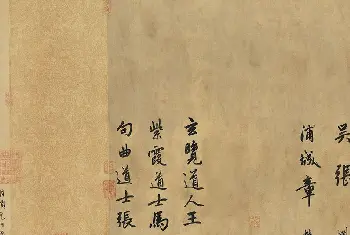 吴張
浦城章
玄覽道人王
紫霞道士馬
句曲道士張